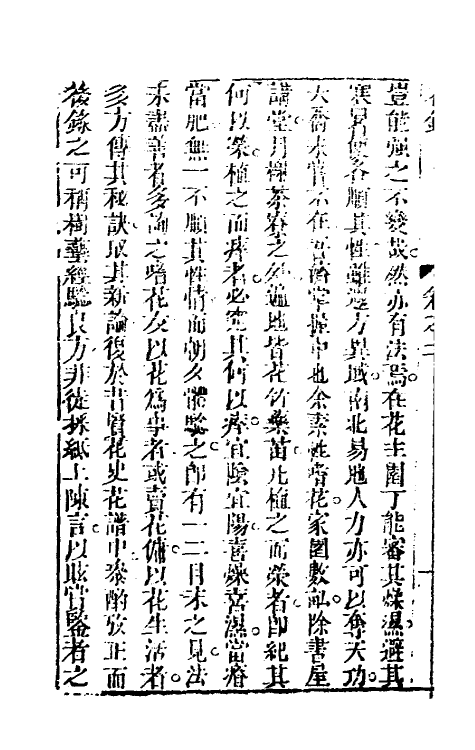 豈能強之不變哉然亦有法焉在花主園丁能審其燥濕避其
寒暑使各順其性雖遐方異域南北易地人力亦可以奪天功
夭喬未嘗不在吾儕掌握中也余素性嗜花家園數畝除書屋
講堂月榭茶寮之外遍地皆花竹藥苗凡植之而榮者即紀其
何以榮植之而瘁者必究其何以瘁宜陰宜陽喜燥喜濕當瘠
當肥無一不順其性情而朝夕體驗之即有一二目未之見法
未盡善者多詢之嗜花友以花為事者或賣花傭以花生活者
多方傳其秘訣取其新論復於昔賢花史花譜中參酌攷正而
後錄之可稱樹藝經驗良方非徒採紙上陳言以眩賞鑒者之